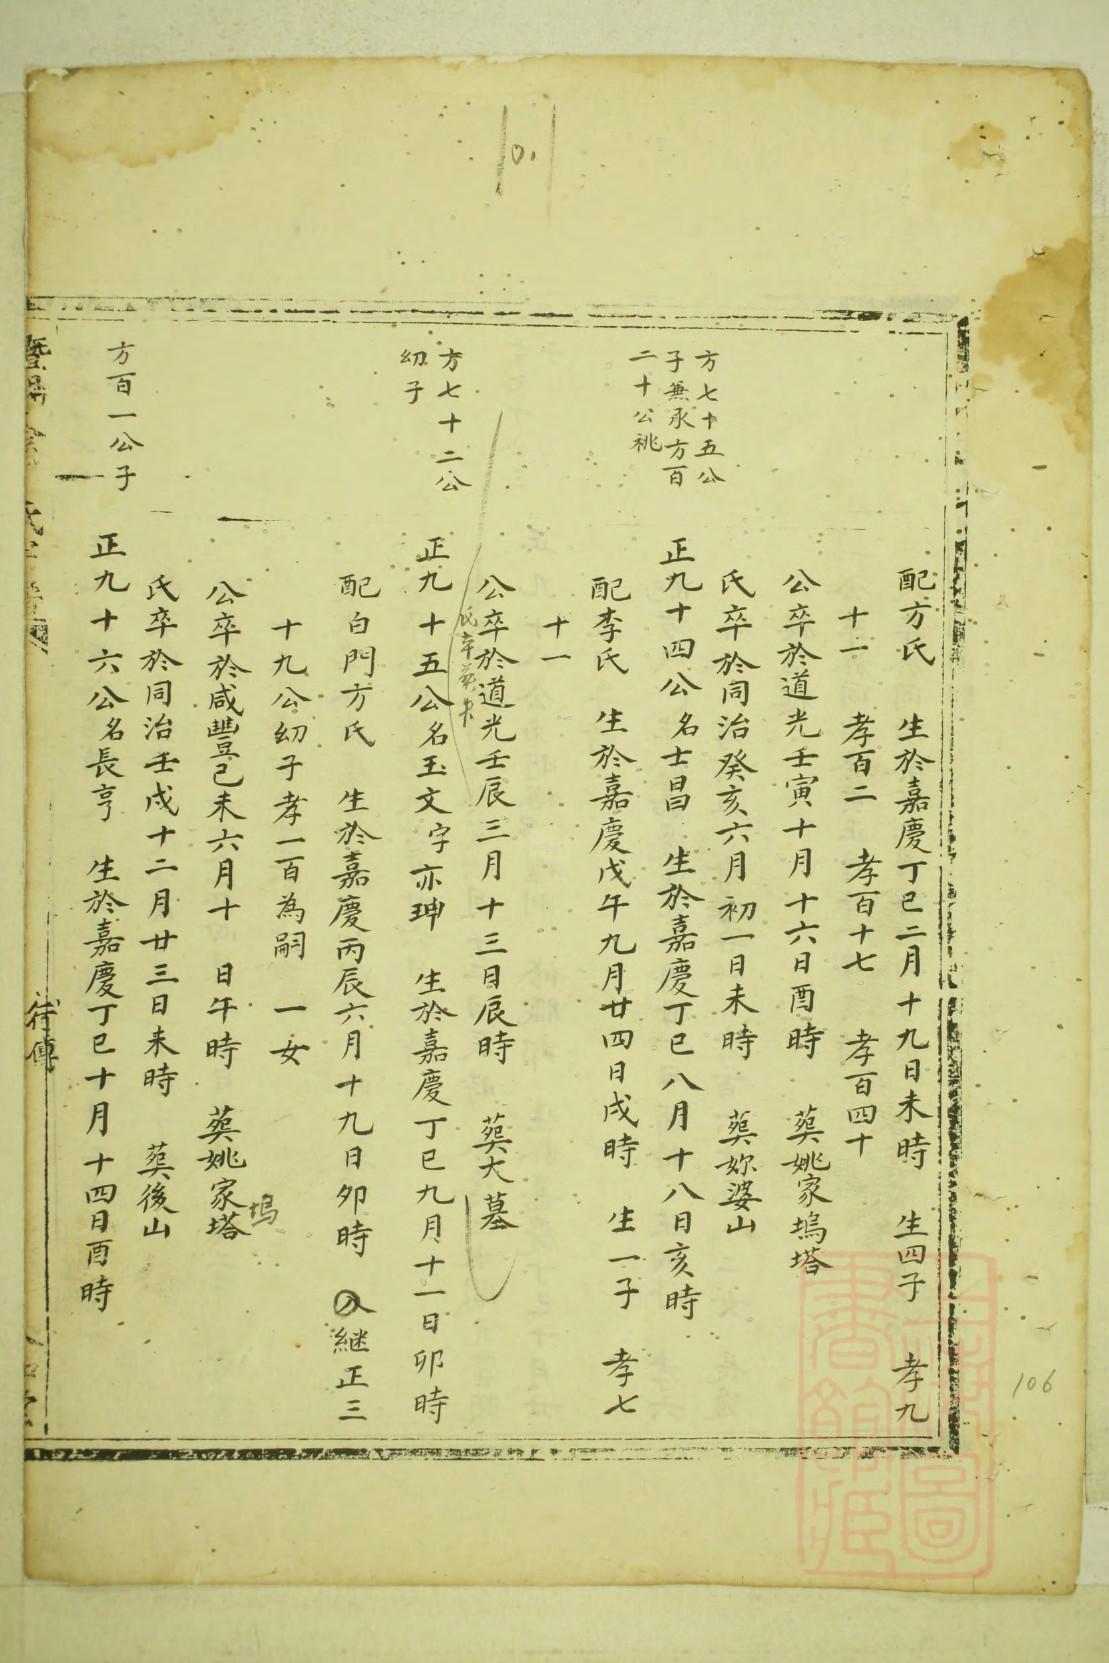 101
配方氏 生於嘉慶丁巳二月十九日未時 生四子 孝九
十一 孝百二 孝百十七 孝百四十
公卒於道光壬寅十月十六日酉時 葬姚家塢塔
氏卒於同治癸亥六月初一日未時 葬妳婆山
方七十五公
子兼承方百
二十公祧
正九十四公名士昌 生於嘉慶丁巳八月十八日亥時
配李氏 生於嘉慶戊午九月廿四日戌時 生一子 孝七
十一
公卒於道光壬辰三月十三日辰時 葬大墓
氏卒葬失
方七十二公
幼子
正九十五公名玉文字亦珅 生於嘉慶丁巳九月十一日卯時
配白門方氏 生於嘉慶丙辰六月十九日卯時 入継正三
十九公幼子孝一百為嗣 一女
公卒於咸豐己未六月十 日午時 葬姚家塔
塢
氏卒於同治壬戌十二月廿三日未時 葬後山
方百一公子
正九十六公名長亨 生於嘉慶丁巳十月十四日酉時
行傳
106